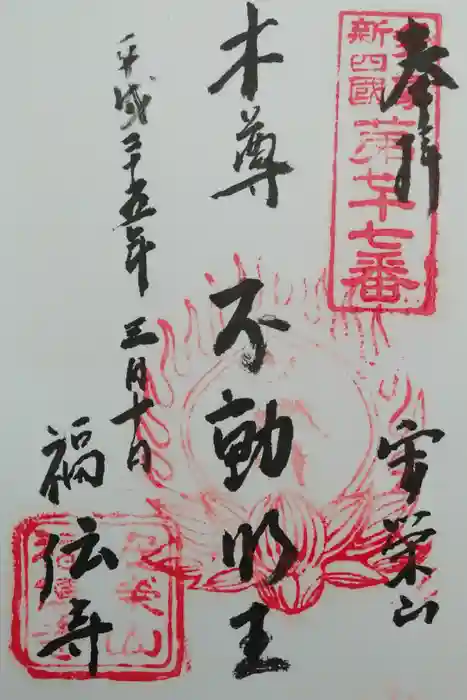 奉拝
新四國
第七十七番
安榮山
本尊
不動明王
平成二十五年 三月十日
福伝寺